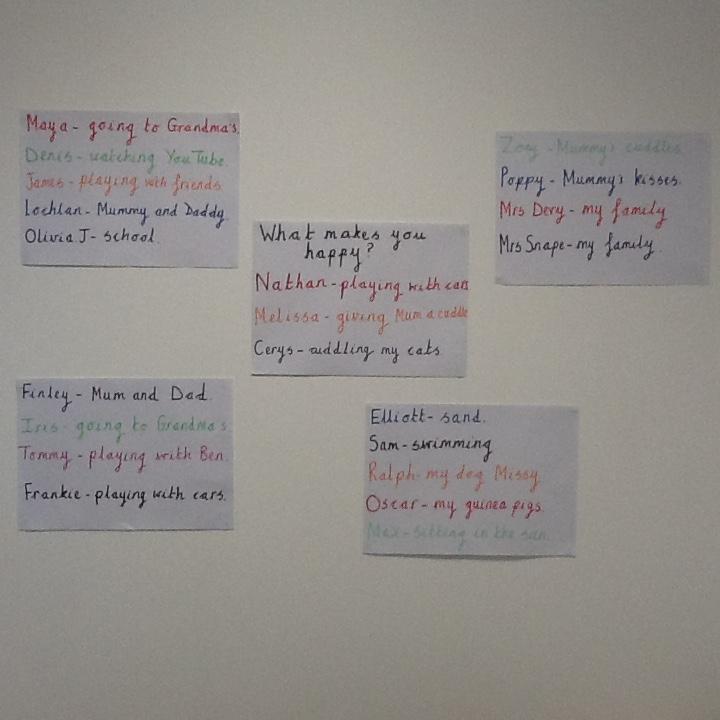 Maya - going to Grandma's.
Denis - watching YouTube.
James - playing with friends.
Lochlan - Mummy and Daddy.
Olivia J - school.
Zoey - Mummy's cuddles.
Poppy - Mummy's kisses.
Mrs Dery - my family
Mrs Snape - my family.
What makes you
happy?
Nathan - playing with cars
Melissa - giving Mum a cuddle
Cerys - cuddling my cats.
Finley - Mum and Dad.
Iris - going to Grandma's
Tommy - playing with Ben.
Frankie - playing with cars.
Elliott - sand.
Sam - swimming
Ralph - my dog Missy.
Oscar - my guinea pigs.
Max - sitting in the sun.